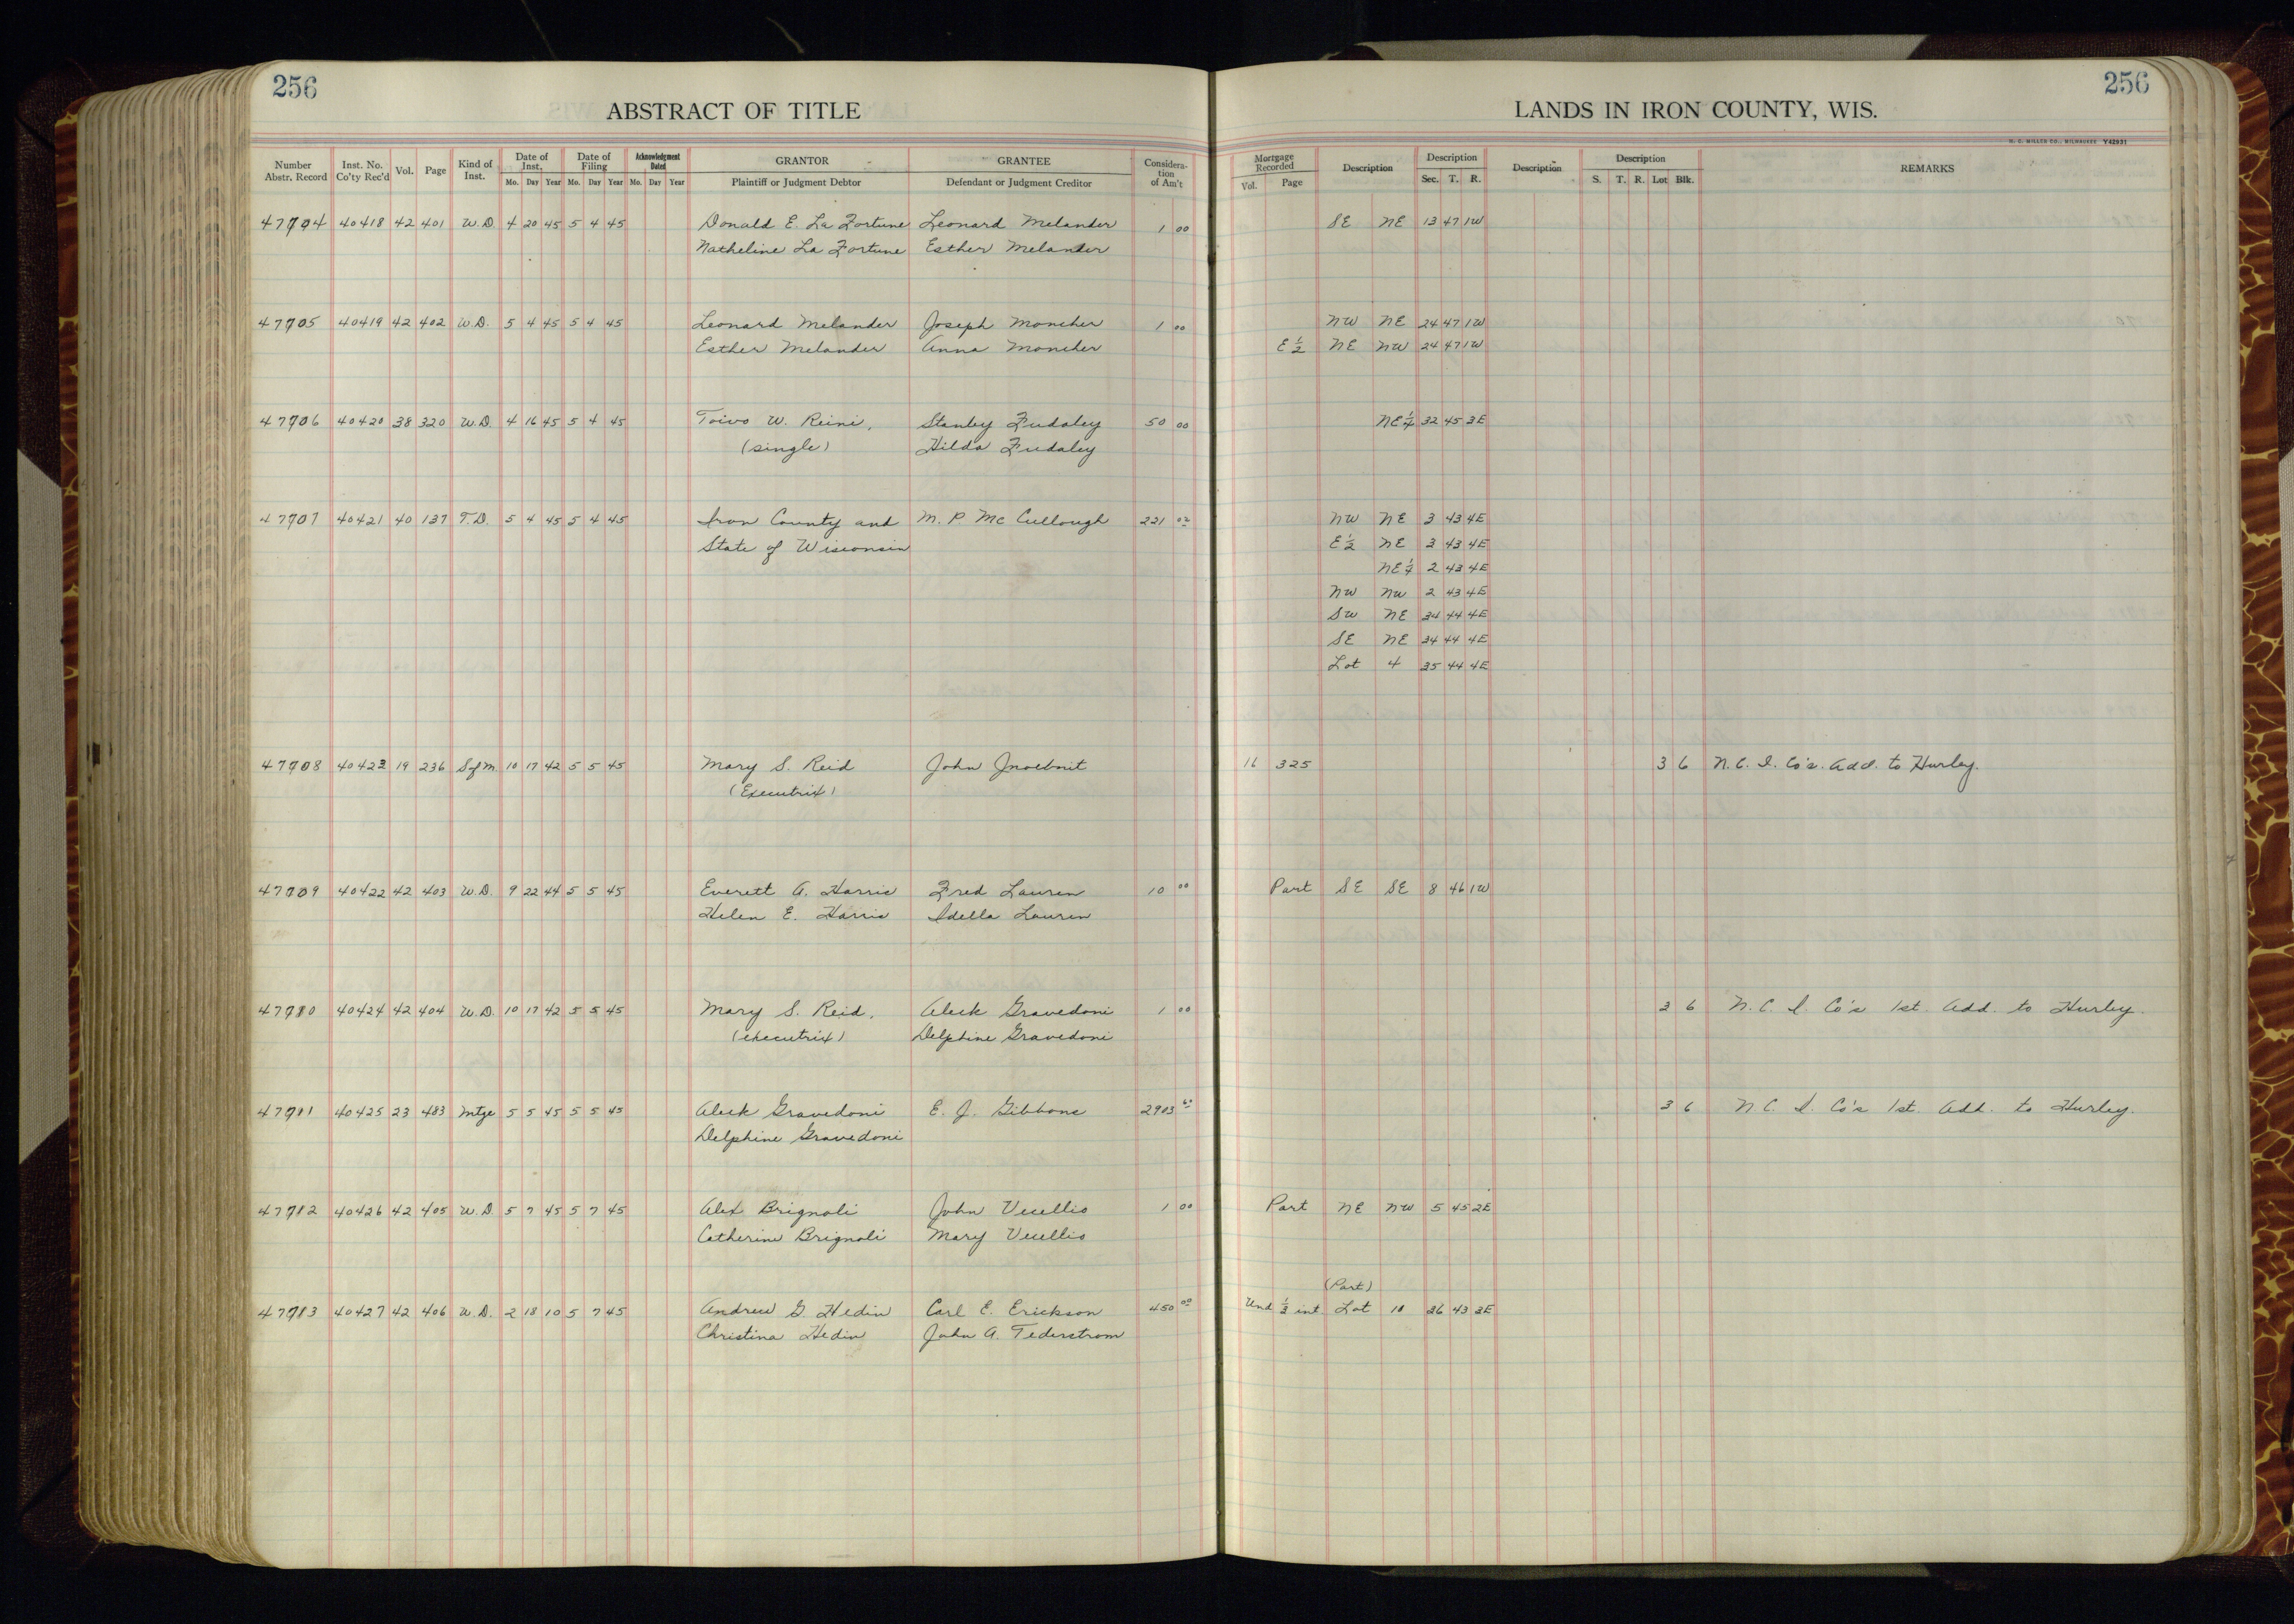 256
256
ABSTRACT OF TITLE
LANDS IN IRON COUNTY, WIS.
N. C. MILLER CO., MILWAUKEE Y42931
Number Abstr. Record Inst. No. Co'ty Rec'd Vol. Page Kind of Inst. Date of Inst. Date of Filing Acknowledgment Dated GRANTOR GRANTEE Considera-tion of Am't Mortgage Recorded Description Description Description Description REMARKS
Mo. Day Year Mo. Day Year Mo. Day Year Plaintiff or Judgment Debtor Defendant or Judgment Creditor Vol. Page Sec. T. R. S. T. R. Lot Blk.
47704 40418 42 401 W.D. 4 20 45 5 4 45 Donald E. La Fortune Leonard Melander 1 00 SE NE 13 47 1W
Natheline La Fortune Esther Melander
47705 40419 42 402 W.D. 5 4 45 5 4 45 Leonard Melander Joseph Moncher 1 00 NW NE 24 47 1W
Esther Melander Anna Moncher E ½ NE NW 24 47 1W
47706 40420 38 320 W.D. 4 16 45 5 4 45 Toivo W. Reini, Stanley Zudaley 50 00 NE¼ 32 45 3E
(single) Hilda Zudaley
47707 40421 40 137 T.D. 5 4 45 5 4 45 Iron County and M. P. McCullough 221 02 NW NE 3 43 4E
State of Wisconsin E½ NE 3 43 4E
NE¼ 2 43 4E
NW NW 2 43 4E
SW NE 34 44 4E
SE NE 34 44 4E
Lot 4 35 44 4E
47708 40423 19 236 Sfm 10 17 42 5 5 45 Mary S. Reid John 16 325 3 6 N. C. I. Co's. Add. to Hurley.
(Executrix)
47709 40422 42 403 W.D. 9 22 44 5 5 45 Everett A. Harris Fred Lauren 10 00 Part SE SE 8 46 1W
Helen E. Harris Idella Lauren
40424 42 404 W.D. 10 17 42 5 5 45 Mary S. Reid, Aleck Gravedoni 1 00 3 6 N. C. I. Co's 1st. Add. to Hurley.
(executrix) Delphine Gravedoni
40425 23 483 Mtge 5 5 45 5 5 45 Aleck Gravedoni E. J. Gibbons 2903 60 3 6 N C. I. Co's 1st. Add. to Hurley.
Delphine Gravedoni
40426 42 405 W.D. 5 7 45 5 7 45 Alex Brignoli John Vecellio 1 00 Part NE NW 5 45 2E
Catherine Brignoli Mary Vecellio
(Part)
40427 42 406 W.D. 2 18 10 5 7 45 Andrew G Hedin Carl E. Erickson 450 00 Und ½ int Lot 10 26 43 3E
Christina Hedin John A. Tederstrom